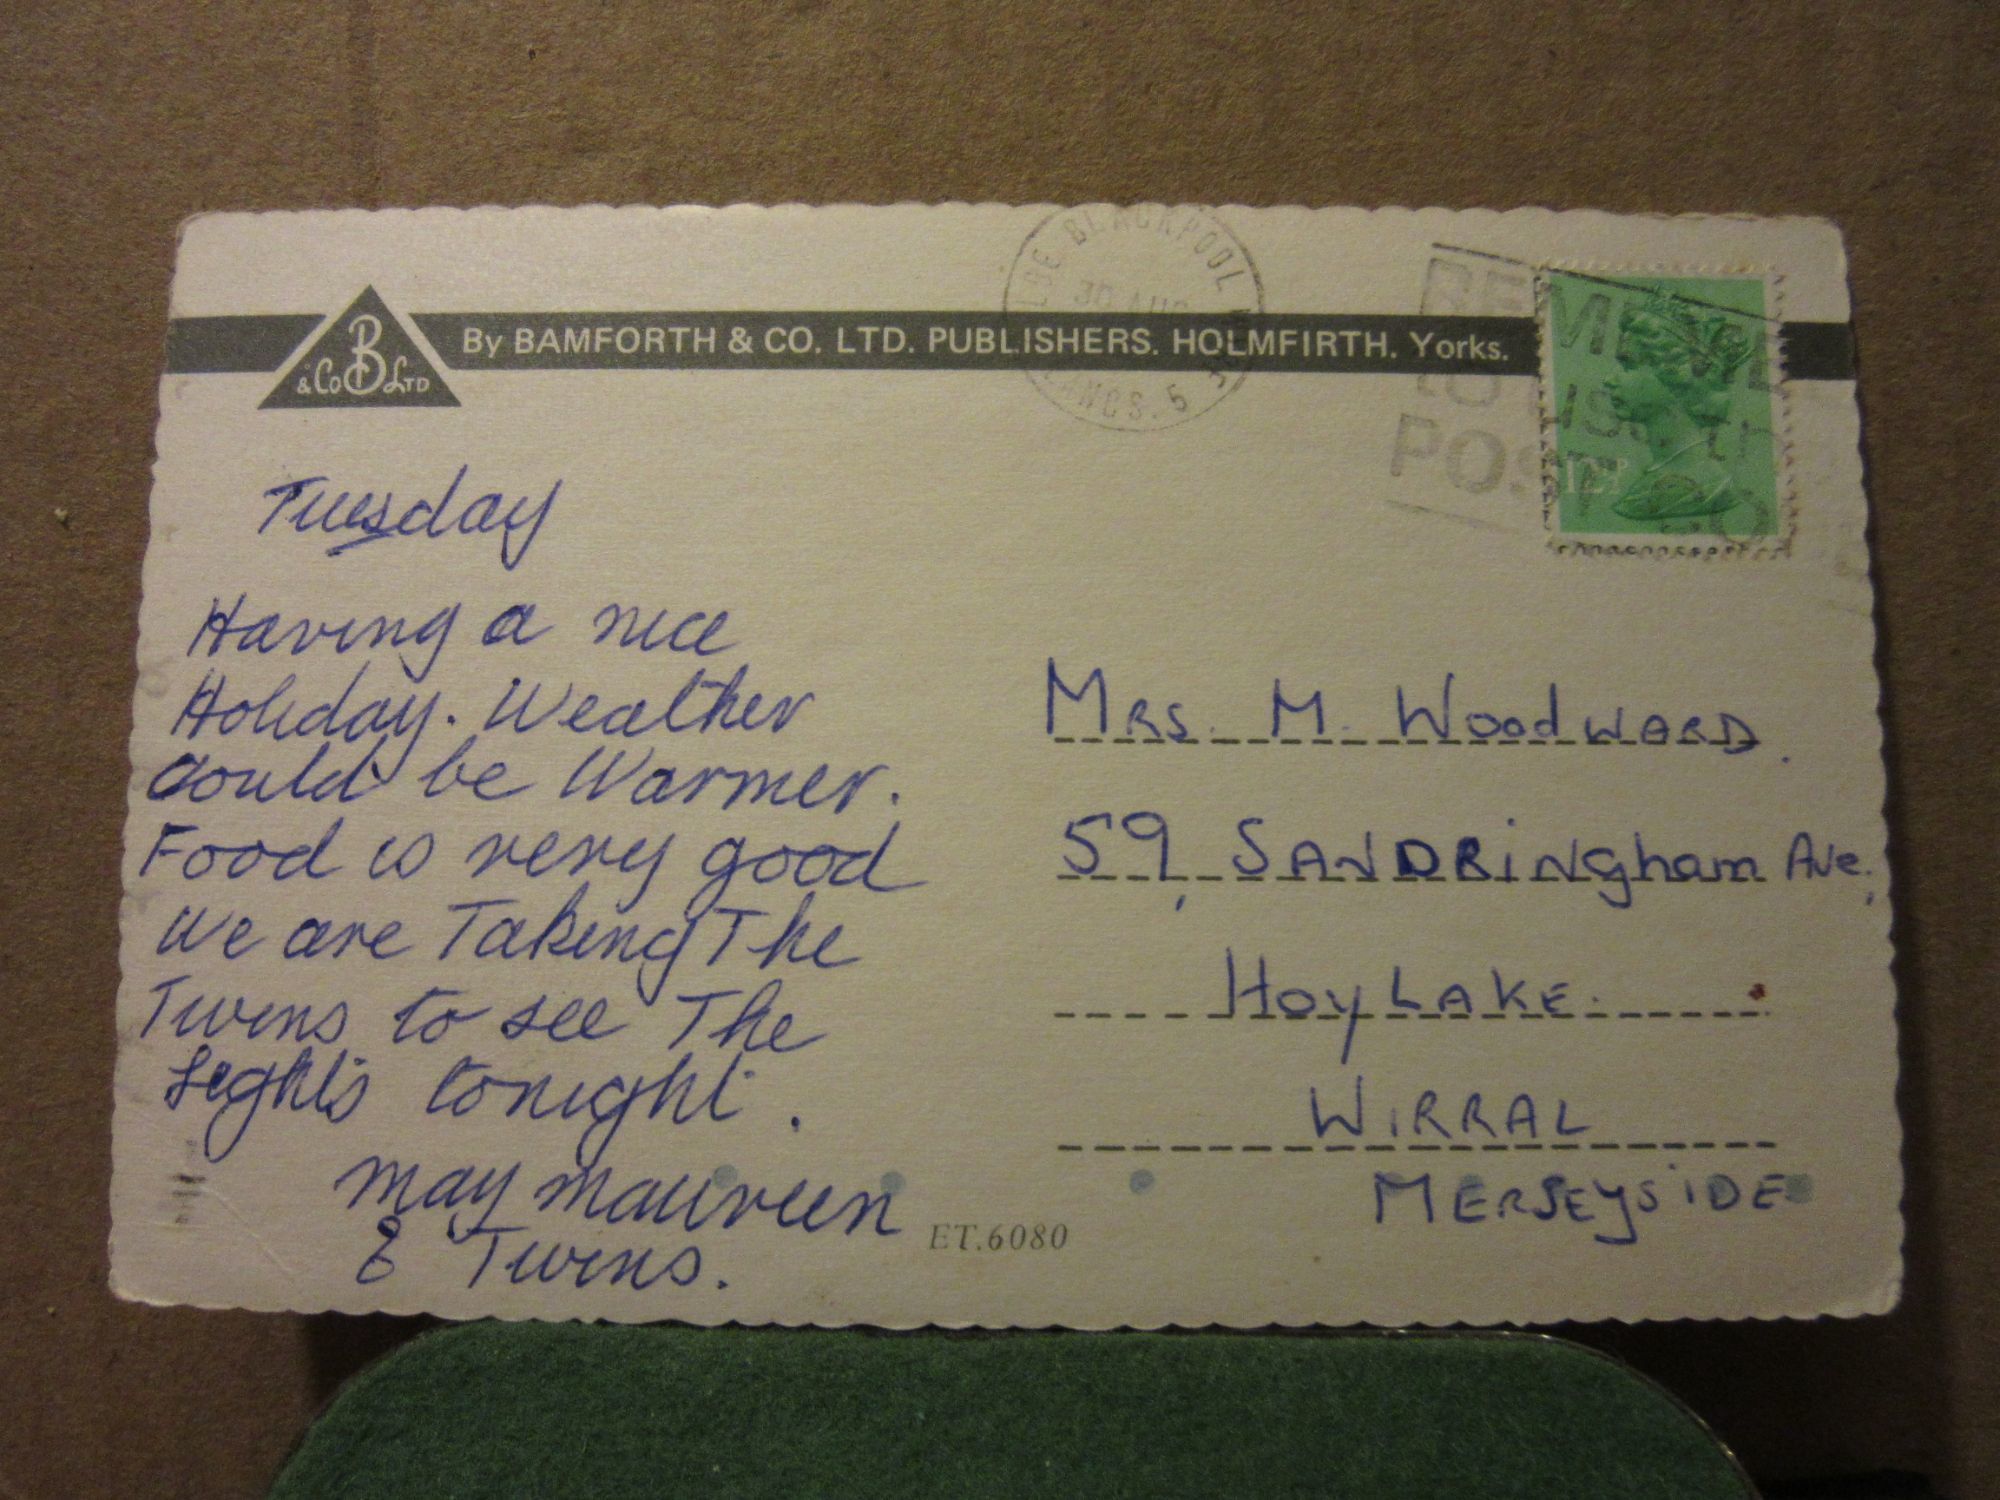 BLACKPOOL
30 AUG
LANCS. 5
& Co B LTD
By BAMFORTH & CO. LTD. PUBLISHERS. HOLMFIRTH. Yorks.
POST
12½P
Tuesday
Having a nice
Holiday. Weather
could be Warmer.
Food is very good
We are Taking The
Twins to see The
Lights tonight.
May Maureen
& Twins.
ET.6080
MRS. M. WoodWARD.
59, SANDRiNgham Ave,
HoyLAKE.
WiRRAL
MERSEySiDE